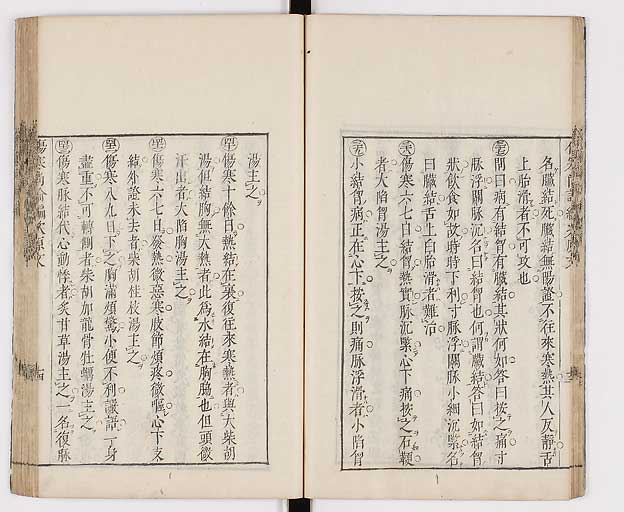 名臓結死臓結無陽證不往來寒熱其人反靜舌
上胎滑者不可攻也
問曰病有結胷有臓結其狀何如答曰按之痛寸
脉浮關脉沉名曰結胷也何謂臓結答曰如結胷
狀飲食如故時時下利寸脉浮關脉小細沉緊名
曰臓結舌上白胎滑者難治
傷寒六七日結胷熱實脉沉緊心下痛按之石鞕
者大陷胷湯主之
小結胷病正在心下按之則痛脉浮滑者小陷胷
湯主之
傷寒十餘日熱結在裏復往來寒熱者與大柴胡
湯但結胸無大熱者此為水結在胸脇也但頭微
汗出者大陷胸湯主之
傷寒六七日發熱微惡寒肢節煩疼微嘔心下支
結外證未去者柴胡桂枝湯主之
傷寒八九日下之胸滿煩驚小便不利譫語一身
盡重不可轉側者柴胡加龍骨牡蠣湯主之
傷寒脉結代心動悸者炙甘草湯主之一名復脉